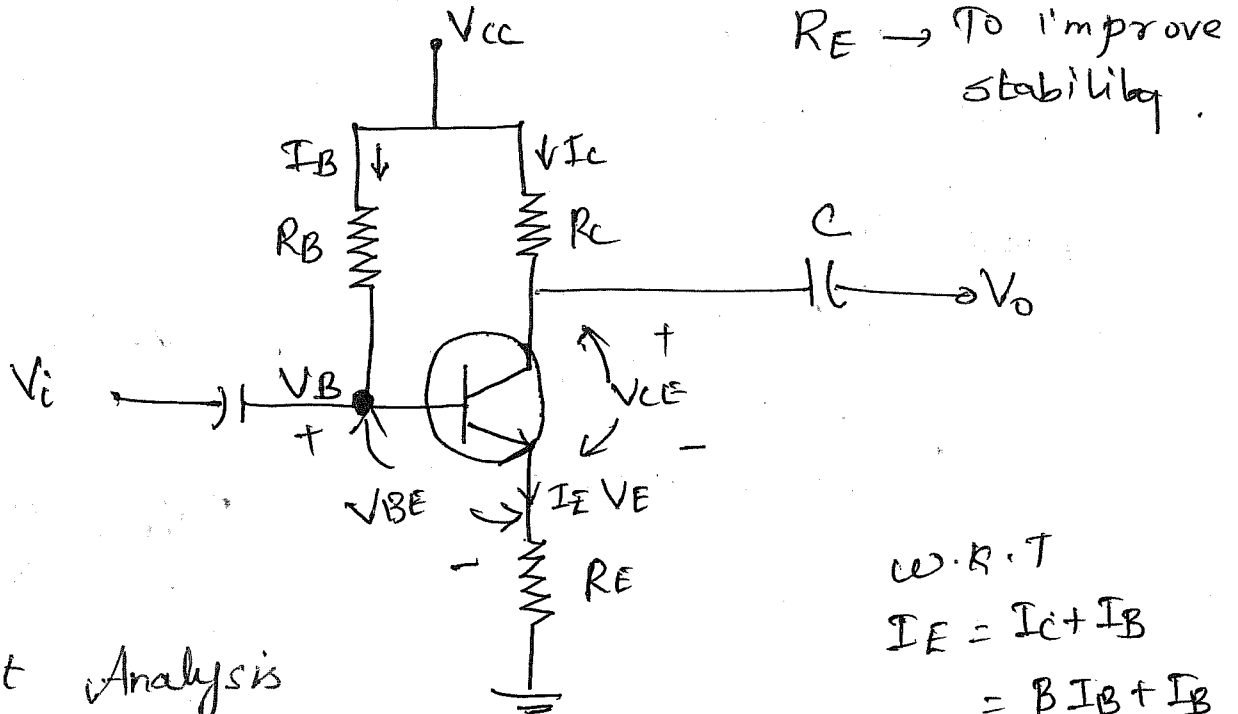 VCC
RE → To improve
stabiliby .
IB ↓
↓ IC
RB
RC
C
Vo
Vi
VB
+
+
VCE
-
VBE
IE VE
-
RE
W.K.T
IE = IC + IB
= B IB + IB
t Analysis